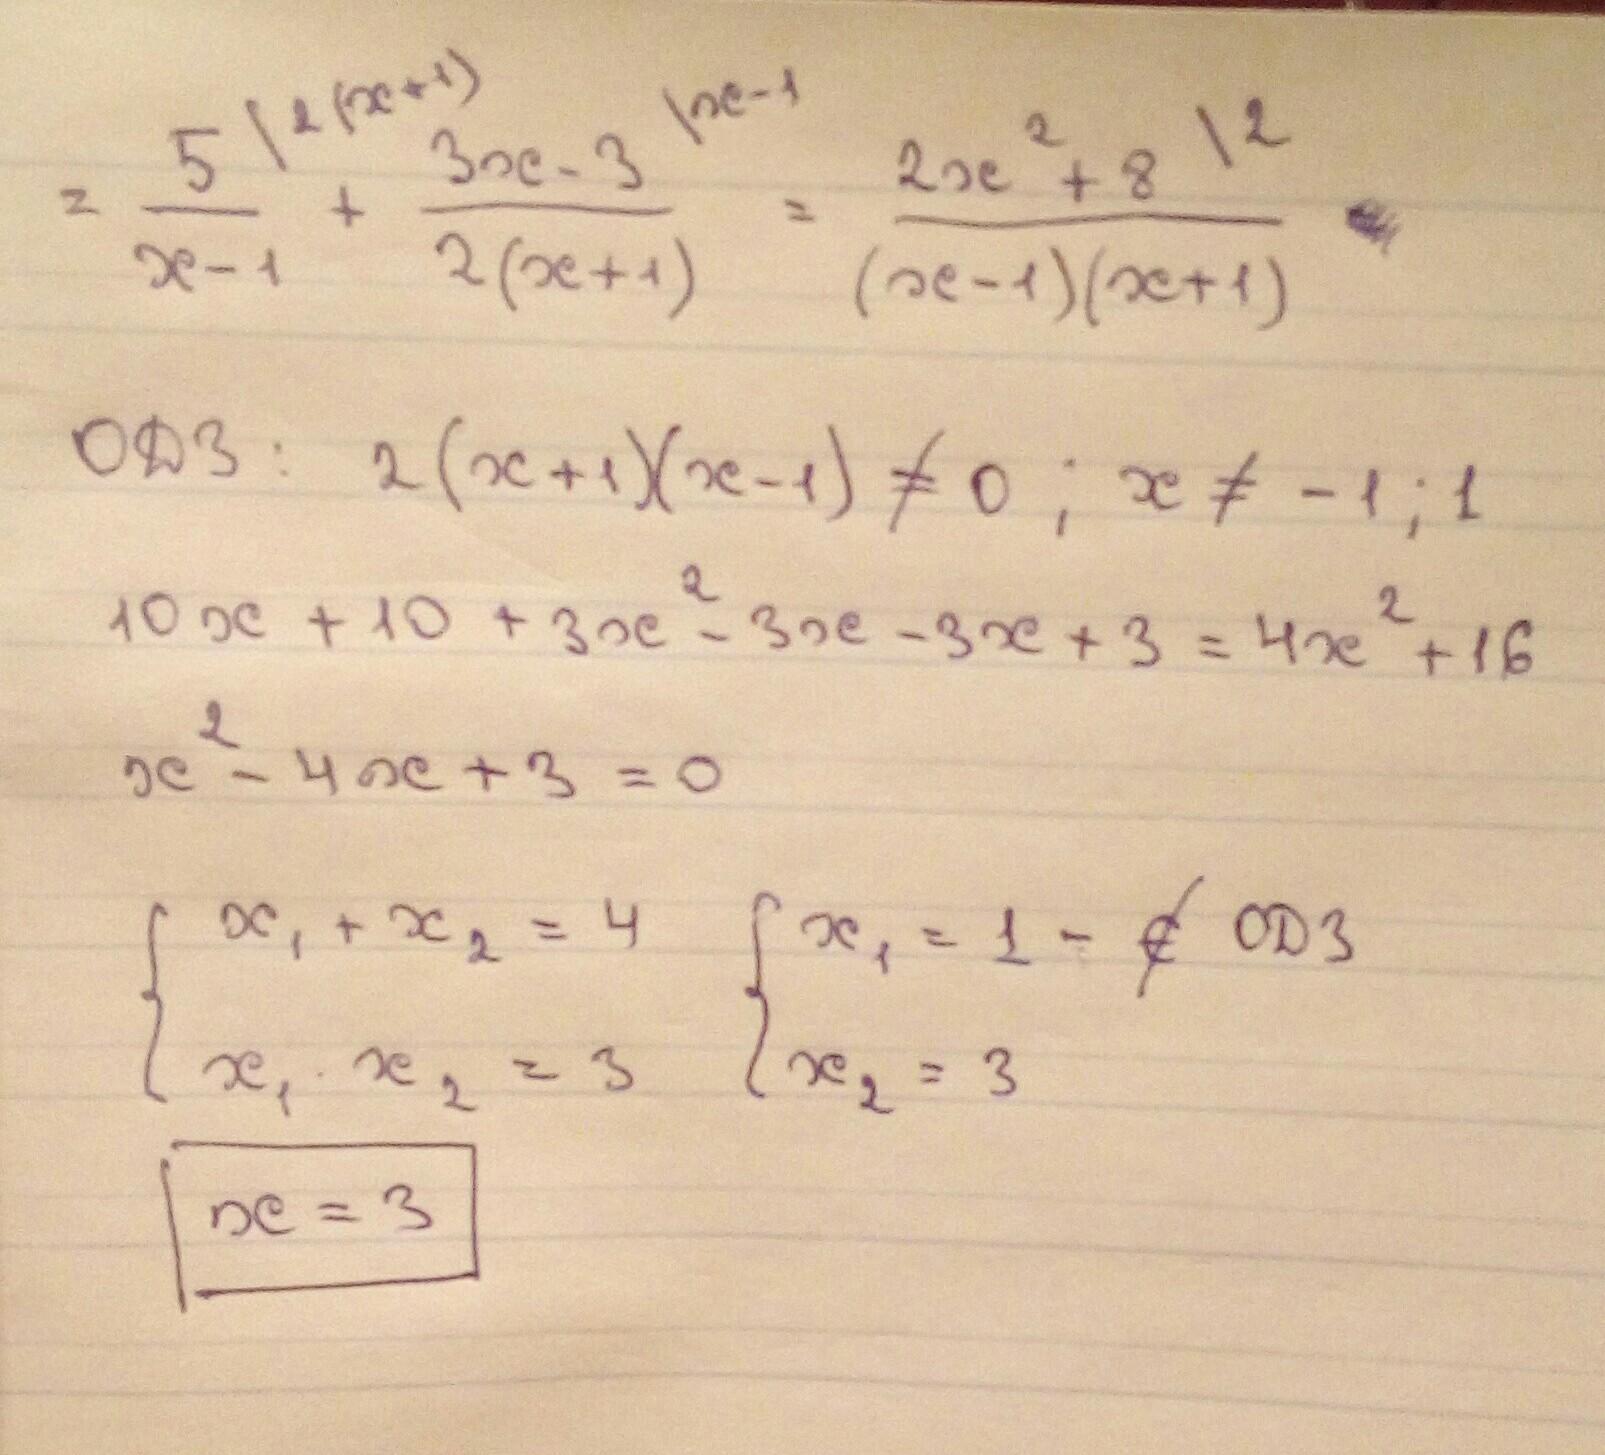 = 5\2(x+1) / x-1 + 3x-3\x-1 / 2(x+1) = 2x²+8\2 / (x-1)(x+1)
ОДЗ: 2(x+1)(x-1) ≠ 0 ; x ≠ -1 ; 1
10x + 10 + 3x² - 3x - 3x + 3 = 4x² + 16
x² - 4x + 3 = 0
{ x₁ + x₂ = 4 { x₁ = 1 - ∉ ОДЗ
x₁ · x₂ = 3 x₂ = 3
x = 3